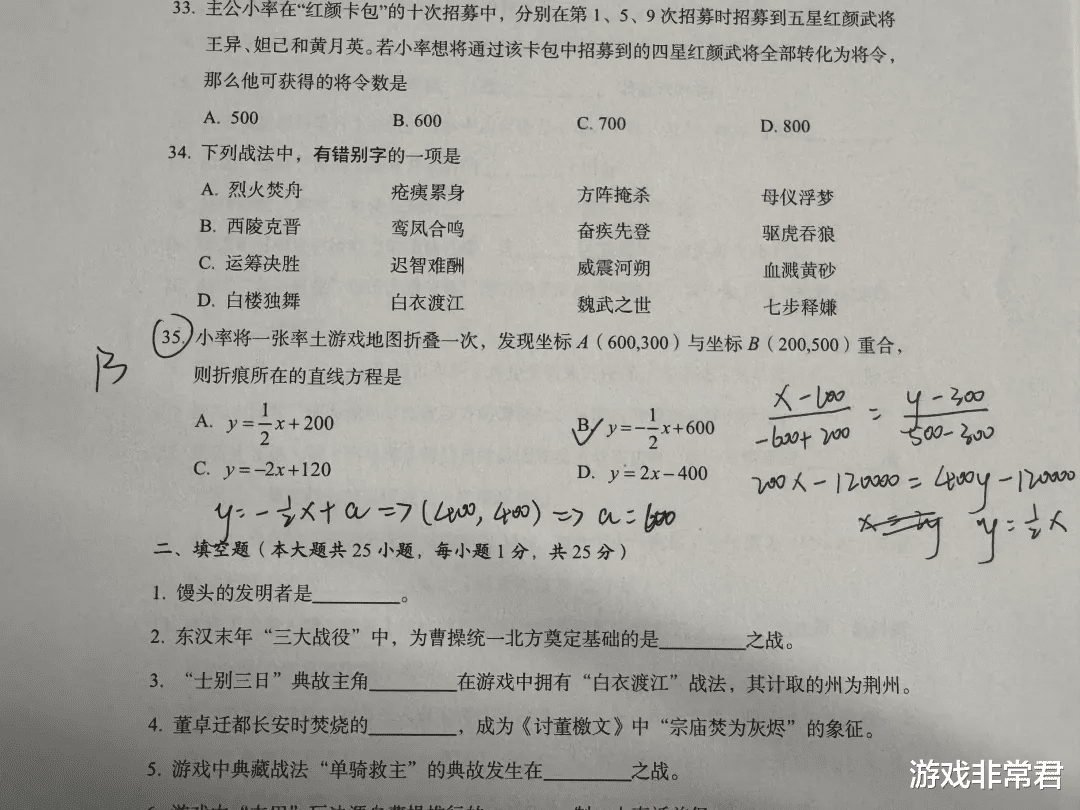 33. 主公小率在“红颜卡包”的十次招募中，分别在第 1、5、9 次招募时招募到五星红颜武将
王异、妲己和黄月英。若小率想将通过该卡包中招募到的四星红颜武将全部转化为将令，
那么他可获得的将令数是
A. 500 B. 600 C. 700 D. 800
34. 下列战法中，有错别字的一项是
A. 烈火焚舟 疮痍累身 方阵掩杀 母仪浮梦
B. 西陵克晋 鸾凤合鸣 奋疾先登 驱虎吞狼
C. 运筹决胜 迟智难酬 威震河朔 血溅黄砂
D. 白楼独舞 白衣渡江 魏武之世 七步释嫌
35. 小率将一张率土游戏地图折叠一次，发现坐标 A（600,300）与坐标 B（200,500）重合，
B
则折痕所在的直线方程是
A. y=1/2x+200 B. y=-1/2x+600
C. y=-2x+120 D. y=2x-400
x-600/-600+200 = y-300/500-300
200x-120000=400y-120000
y=1/2x
y=-1/2x+a=>(400,400)=>a=600
二、填空题（本大题共 25 小题，每小题 1 分，共 25 分）
1. 馒头的发明者是________。
2. 东汉末年“三大战役”中，为曹操统一北方奠定基础的是________之战。
3. “士别三日”典故主角________在游戏中拥有“白衣渡江”战法，其计取的州为荆州。
4. 董卓迁都长安时焚烧的________，成为《讨董檄文》中“宗庙焚为灰烬”的象征。
5. 游戏中典藏战法“单骑救主”的典故发生在________之战。
游戏非常君